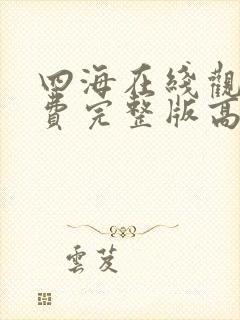 四海在线觀
費完整版高
雲芨